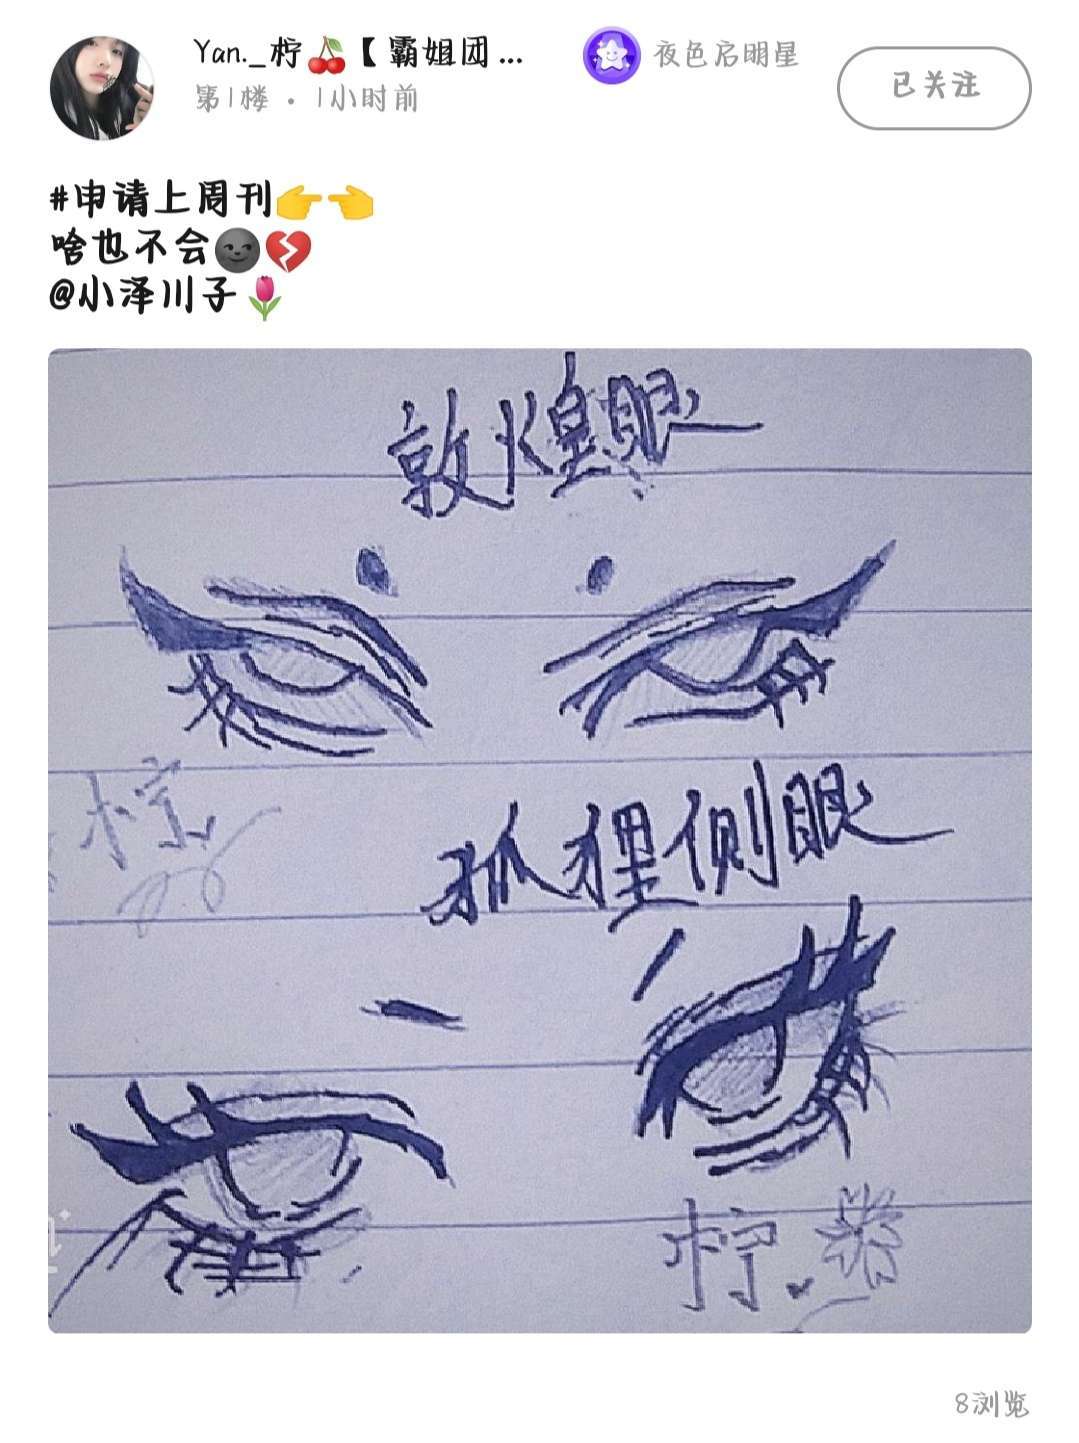 Yan._柠🍒【霸姐团...
夜色启明星
已关注
第1楼 · 1小时前
#申请上周刊👉👈
啥也不会🌚💔
@小泽川子🌷
敦煌眼
柠
狐狸侧眼
柠
8浏览